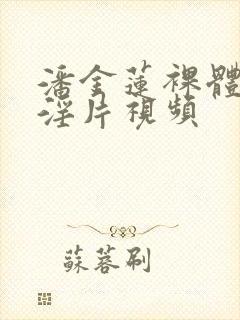 潘金蓮裸體
淫片視頻
蘇蓉刷